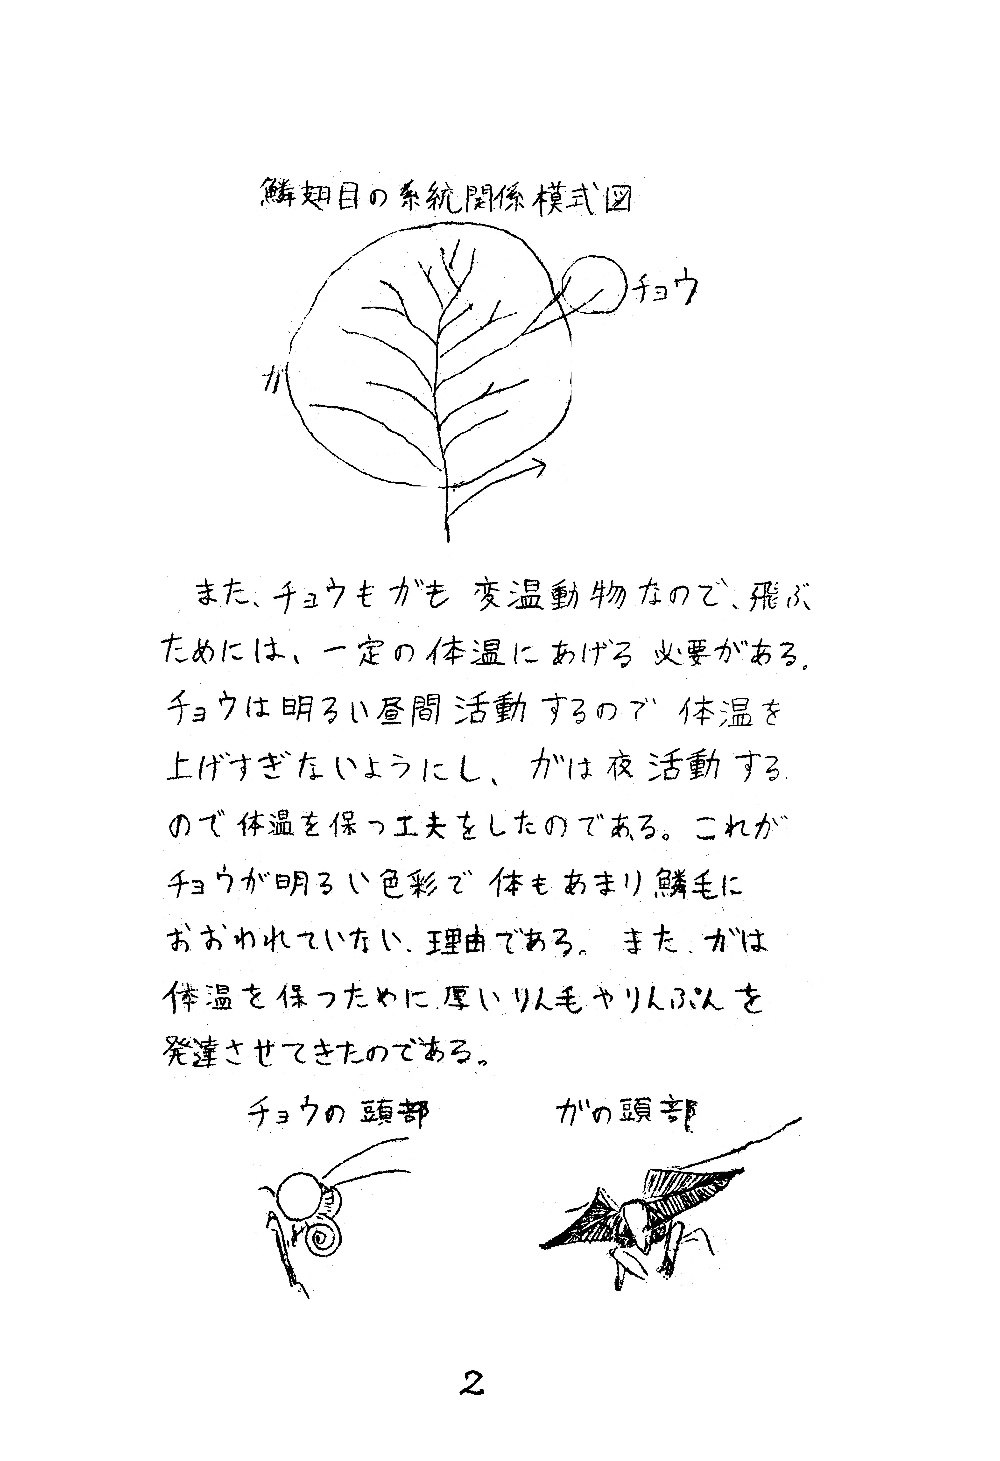 鱗翅目の系統関係模式図
チョウ
ガ
また、チョウもがも変温動物なので、飛ぶ
ためには、一定の体温にあげる必要がある。
チョウは明るい昼間活動するので体温を
上げすぎないようにし、がは夜活動する
ので体温を保つ工夫をしたのである。これが
チョウが明るい色彩で体もあまり鱗毛に
おおわれていない、理由である。また、がは
体温を保つために厚いりん毛やりんぷんを
発達させてきたのである。
チョウの頭部
がの頭部
2